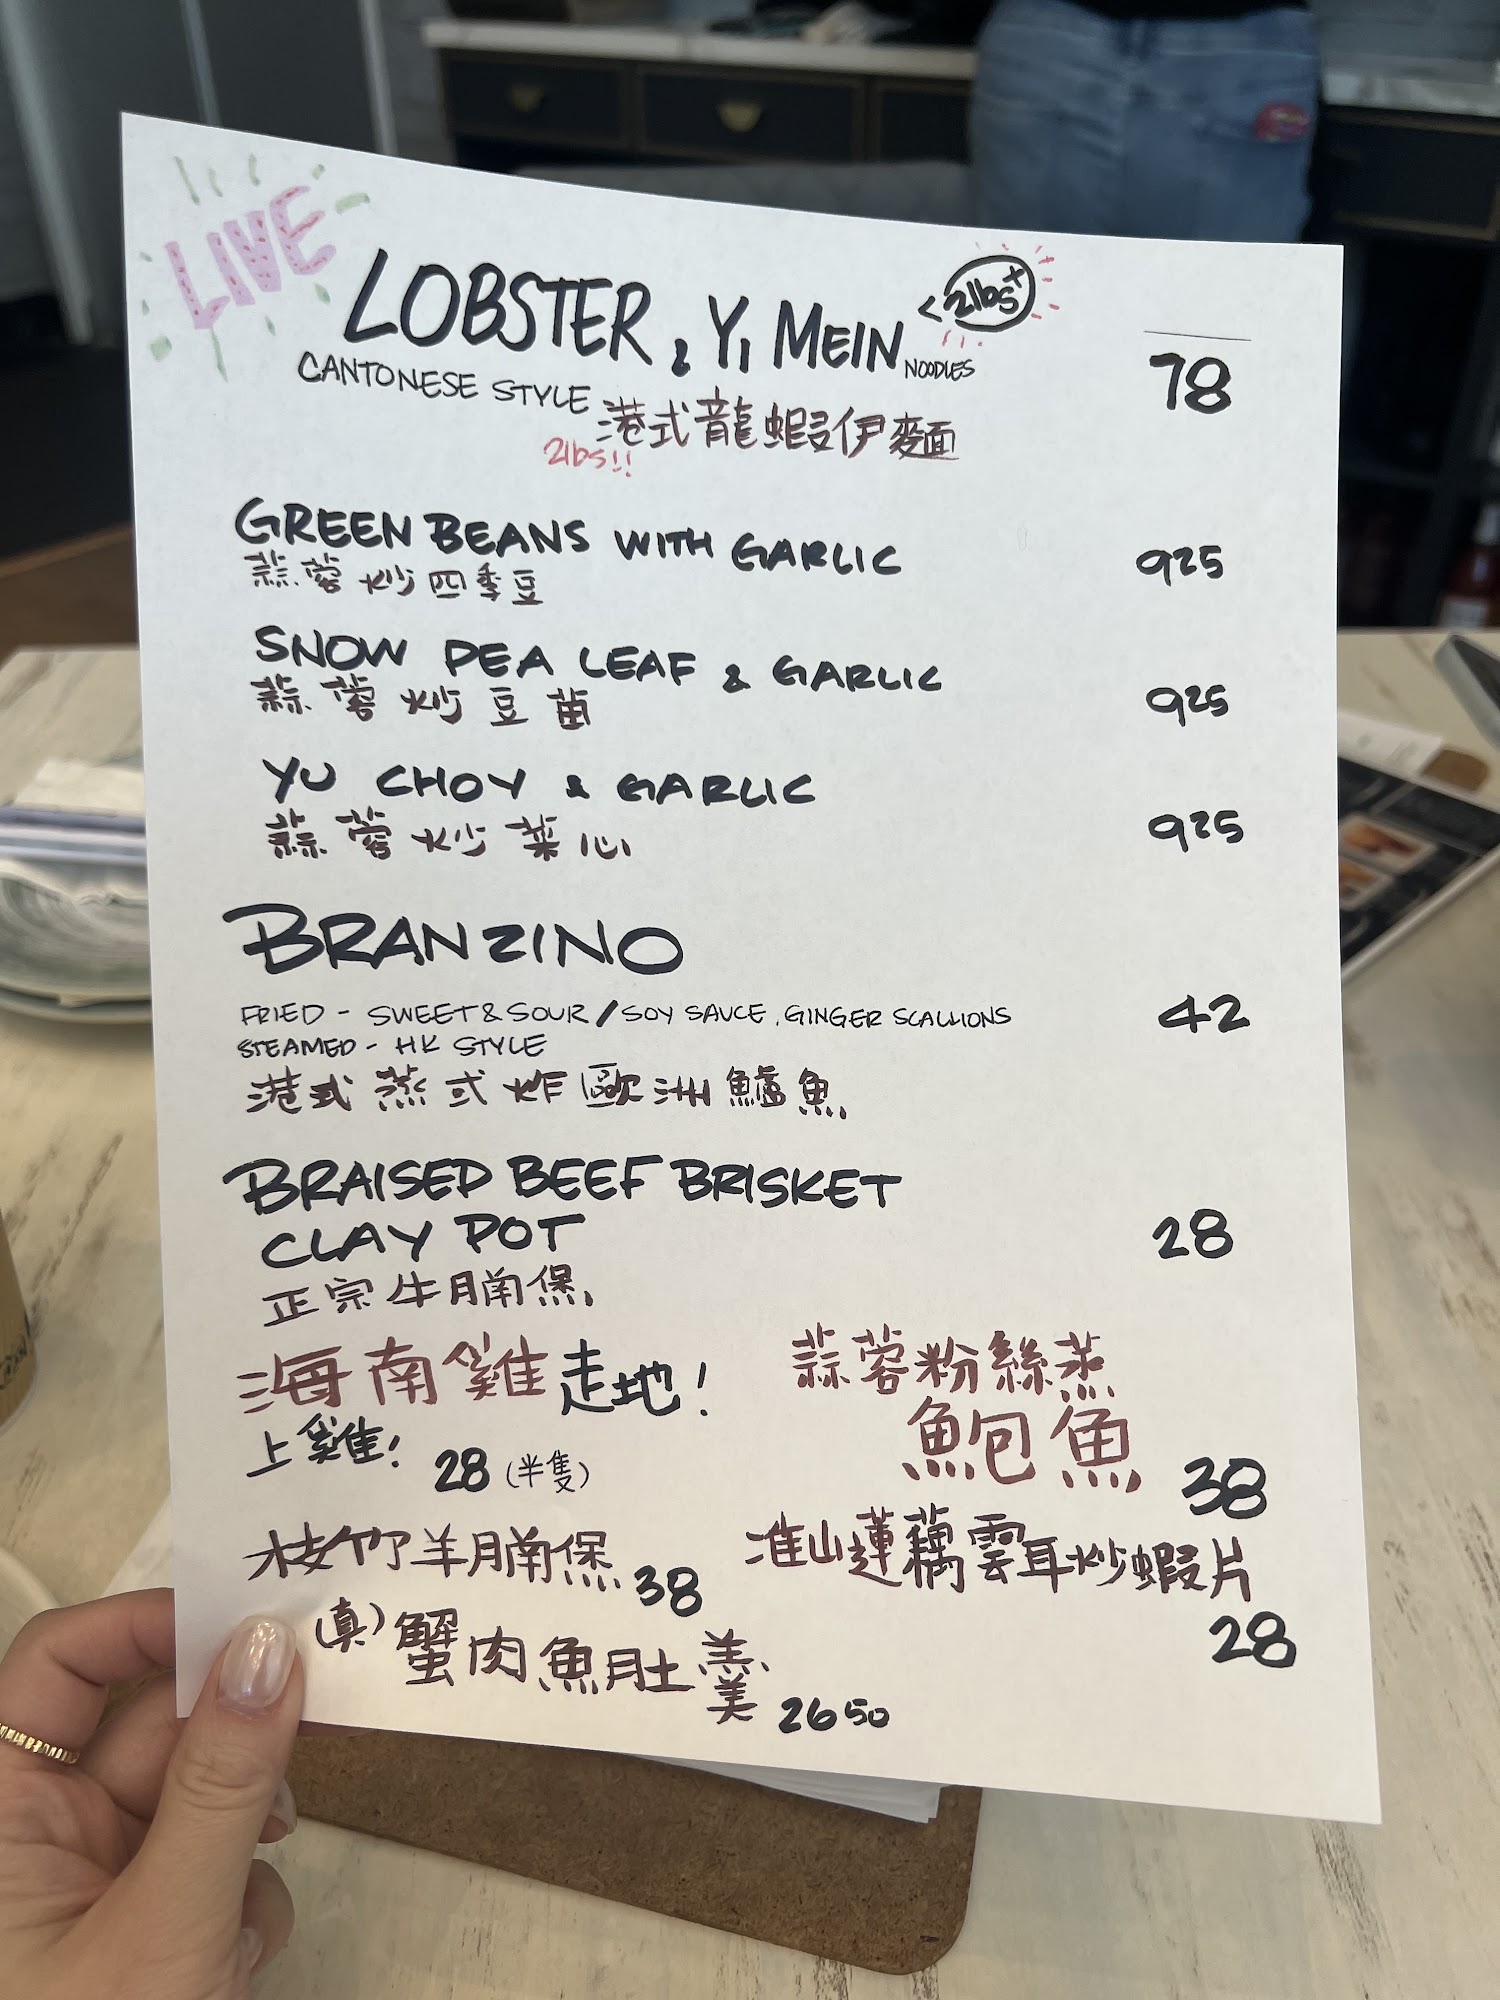 LIVE
LOBSTER & YI MEIN NOODLES <2lbs+
78
CANTONESE STYLE 港式龍蝦伊麵
2lbs!!
GREEN BEANS WITH GARLIC 925
蒜蓉炒四季豆
SNOW PEA LEAF & GARLIC 925
蒜蓉炒豆苗
YU CHOY & GARLIC 925
蒜蓉炒菜心
BRANZINO
FRIED - SWEET & SOUR / SOY SAUCE, GINGER SCALLIONS 42
STEAMED - HK STYLE
港式蒸或炸歐洲鱸魚
BRAISED BEEF BRISKET
CLAY POT 28
正宗牛腩煲
海南雞走地!
上雞! 28 (半隻)
蒜蓉粉絲蒸
鮑魚 38
枝竹羊腩煲 38
淮山蓮藕雲耳炒蝦片
28
(真)蟹肉魚肚羹 2650